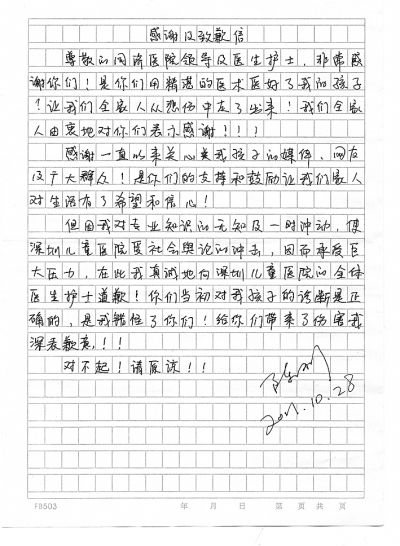 感谢及致歉信
尊敬的同济医院领导及医生护士,非常感
谢你们!是你们用精湛的医术医好了我的孩子
!让我们全家人从悲伤中走了出来!我们全家
人由衷地对你们表示感谢!!!
感谢一直以来关心关我孩子的媒体、网友
及广大群众!是你们的支撑和鼓励让我们家人
对生活有了希望和信心!
但因我对专业知识的无知及一时冲动,使
深圳儿童医院受社会舆论的冲击,因而承受巨
大压力,在此我真诚地向深圳儿童医院的全体
医生护士道歉!你们当初对我孩子的诊断是正
确的,是我错怪了你们!给你们带来了伤害我
深表歉意!!!
对不起!请原谅!!!
2011.10.28
FB503 年 月 日 第 页 共 页